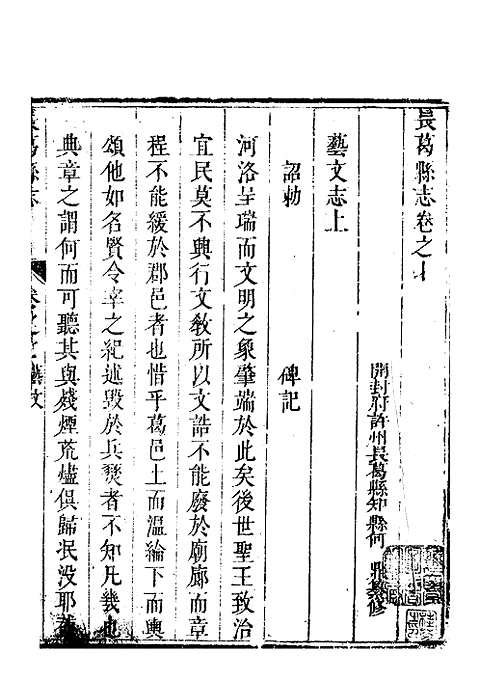 長葛縣志卷之七
開封府許州長葛縣知縣何鼎纂修
藝文志上
詔勅　碑記
河洛呈瑞而文明之象肇端於此矣後世聖王致治
宜民莫不興行文敎所以文誥不能廢於廟廊而章
程不能緩於郡邑者也惜乎葛邑上而溫綸下而輿
頌他如名賢令宰之紀述毀於兵燹者不知凡幾也
典章之謂何而可聽其與殘煙荒燼俱歸泯没耶
長葛縣志　卷之七　藝文